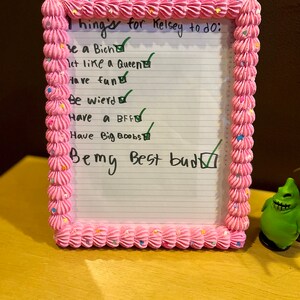 Things for Kelsey to do:
Be a Bich
Act like a Queen
Have fun
Be wierd
Have a BFF
Have Big Boobs
Be my Best bud